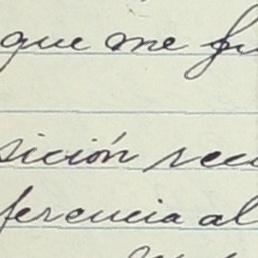 que me fu
sición recu
ferencia al